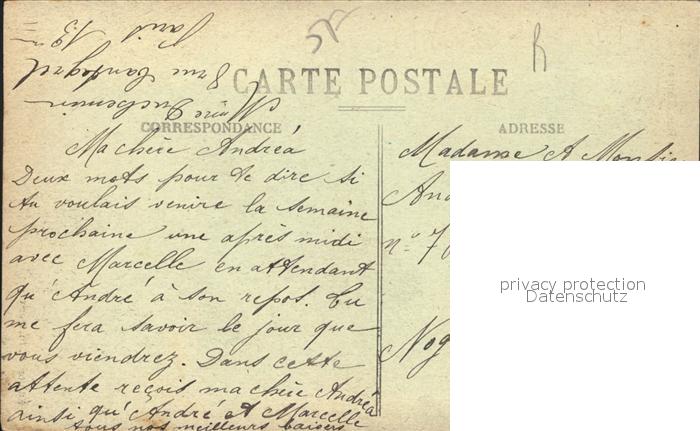 CARTE POSTALE
CORRESPONDANCE
Ma chère Andréa
Deux mots pour te dire si
tu voulais venire la semaine
prochaine une après midi
avec Marcelle en attendant
qu'André à son repos. Tu
me fera savoir le jour que
vous viendrez. Dans cette
attente reçois ma chère Andréa
ainsi qu'André et Marcelle
tous nos meilleurs baisers
Mme Duchemin
8 rue Cantagrel
Paris 13e
ADRESSE
Madame et Monsie
And
n° 7
Nog
privacy protection
Datenschutz